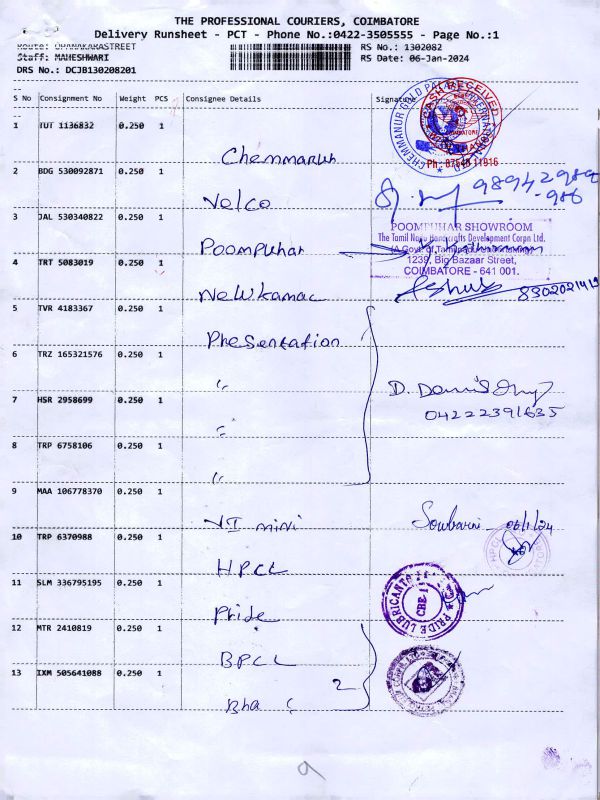 THE PROFESSIONAL COURIERS, COIMBATORE
Delivery Runsheet - PCT - Phone No.:0422-3505555 - Page No.:1
RS No.: 1302082
Staff: MAHESHWARI
RS Date: 06-Jan-2024
DRS No.: DCJB130208201
S No Consignment No Weight PCS Consignee Details Signature
1 TUT 1136832 0.250 1
Chemmanur
CHEMMANUR GOLD PALACE
CASH RECEIVED
COIMBATORE
Ph: 07548 11916
2 BDG 530092871 0.250 1
Velco
3 JAL 530340822 0.250 1
Poompuhar
POOMPUHAR SHOWROOM
The Tamil Nadu Handicrafts Development Corpn Ltd.
(A Govt. of Tamilnadu Undertaking)
1239, Big Bazaar Street,
COIMBATORE - 641 001.
4 TRT 5083019 0.250 1
5 TVR 4183367 0.250 1
Presentation
6 TRZ 165321576 0.250 1
"
7 HSR 2958699 0.250 1
"
04222391635
8 TRP 6758106 0.250 1
"
9 MAA 106778370 0.250 1
VI mini
06/1/24
10 TRP 6370988 0.250 1
HPCL
HPCL
11 SLM 336795195 0.250 1
Pride
PRIDE LUBRICANTS
CBE-1
12 MTR 2410819 0.250 1
BPCL
13 IXM 505641088 0.250 1
2
9